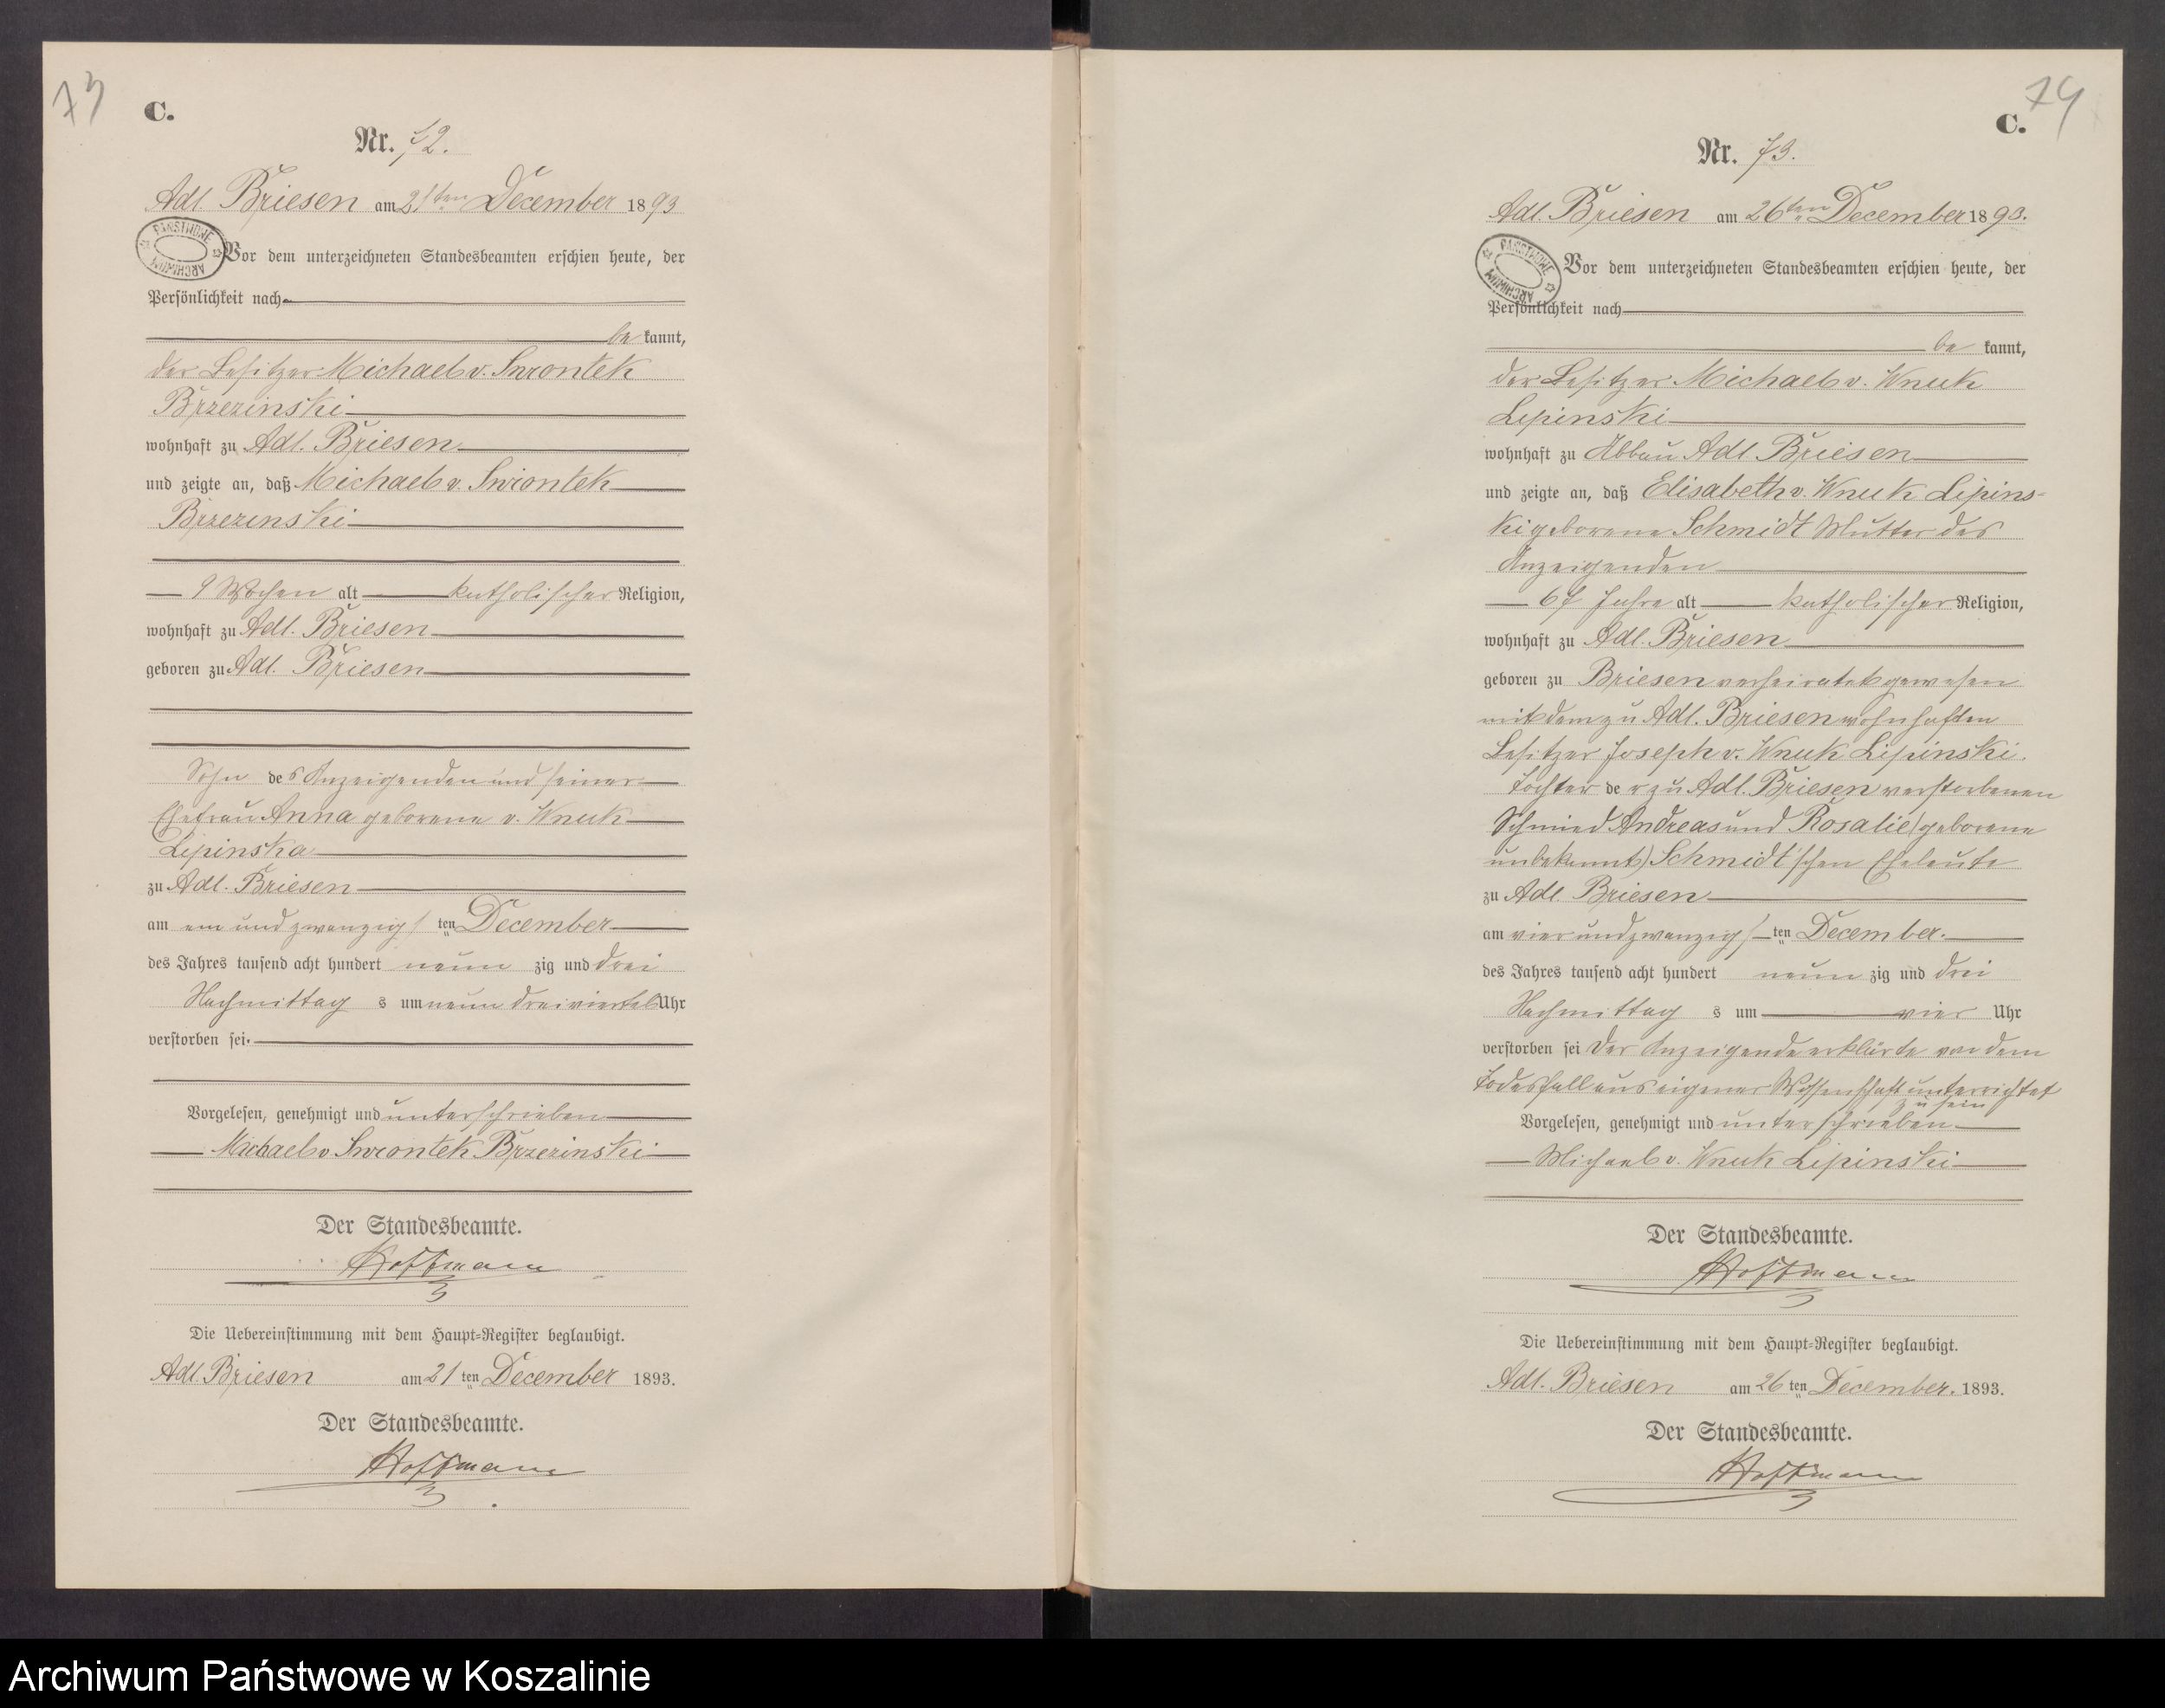 73
C.
Nr. 72.
Adl. Briesen am 21ten December 1893
PAŃSTWOWE ARCHIWUM
Vor dem unterzeichneten Standesbeamten erschien heute, der
Persönlichkeit nach
be kannt,
der Besitzer Michael v. Swiontek
Brzezinski
wohnhaft zu Adl. Briesen
und zeigte an, daß Michael v. Swiontek
Brzezinski
9 Wochen alt katholischer Religion,
wohnhaft zu Adl. Briesen
geboren zu Adl. Briesen
Sohn des Anzeigenden und seiner
Ehefrau Anna geborene v. Wnuk
Lipinska
zu Adl. Briesen
am ein und zwanzigsten December
des Jahres tausend acht hundert neunzig und drei
Nachmittags um neun dreiviertel Uhr
verstorben sei.
Vorgelesen, genehmigt und unterschrieben
Michael v Swiontek Brzezinski
Der Standesbeamte.
Hoffmann
Die Uebereinstimmung mit dem Haupt-Register beglaubigt.
Adl. Briesen am 21ten December 1893.
Der Standesbeamte.
Hoffmann
74
C.
Nr. 73.
Adl. Briesen am 26ten December 1893.
PAŃSTWOWE ARCHIWUM
Vor dem unterzeichneten Standesbeamten erschien heute, der
Persönlichkeit nach
be kannt,
der Besitzer Michael v. Wnuk
Lipinski
wohnhaft zu Abbau Adl. Briesen
und zeigte an, daß Elisabeth v. Wnuk Lipins-
ki geborene Schmidt Mutter des
Anzeigenden
67 Jahre alt katholischer Religion,
wohnhaft zu Adl. Briesen
geboren zu Briesen verheiratet gewesen
mit dem zu Adl. Briesen wohnhaften
Besitzer Joseph v. Wnuk Lipinski.
Tochter der zu Adl. Briesen verstorbenen
Schmied Andreas und Rosalie (geborene
unbekannt) Schmidt'schen Eheleute
zu Adl. Briesen
am vier und zwanzigsten December.
des Jahres tausend acht hundert neunzig und drei
Nachmittags um vier Uhr
verstorben sei Der Anzeigende erklärte von dem
Todesfall aus eigener Wissenschaft unterrichtet
zu sein
Vorgelesen, genehmigt und unterschrieben
Michael v. Wnuk Lipinski
Der Standesbeamte.
Hoffmann
Die Uebereinstimmung mit dem Haupt-Register beglaubigt.
Adl. Briesen am 26ten December. 1893.
Der Standesbeamte.
Hoffmann
Archiwum Państwowe w Koszalinie